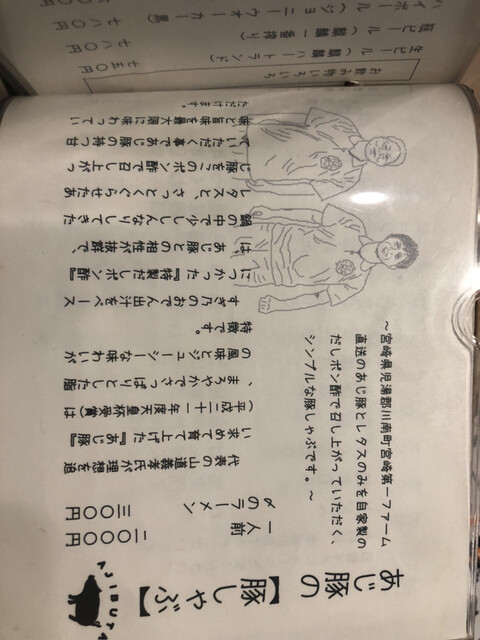 あじ豚の
【豚しゃぶ】
AJIBUTA
一人前 二〇〇〇円
〆のラーメン 三〇〇円
～宮崎県児湯郡川南町宮崎第一ファーム
直送のあじ豚とレタスのみを自家製の
だしポン酢で召し上がっていただく、
シンプルな豚しゃぶです。～
代表の山道義孝氏が理想を追
い求めて育て上げた『あじ豚』
(平成二十一年度天皇杯受賞)は
、まろやかでさっぱりとした脂
の風味とジューシーな味わいが
特徴です。
すぎ乃のおでん出汁をベース
につかった『特製だしポン酢』
はあじ豚との相性が抜群で、
鍋の中で少ししんなりしてきた
レタスと、さっとくぐらせたあ
じ豚をこのポン酢で召し上がっ
ていただく事であじ豚の持つ甘
味と旨味を最大限に味わってい
ただけます。
お飲み物いろいろ
生ビール(麒麟 ハートランド) 七五〇円
瓶ビール(麒麟 一番搾り) 七八〇円
ハイボール(ジョニーウォーカー黒)